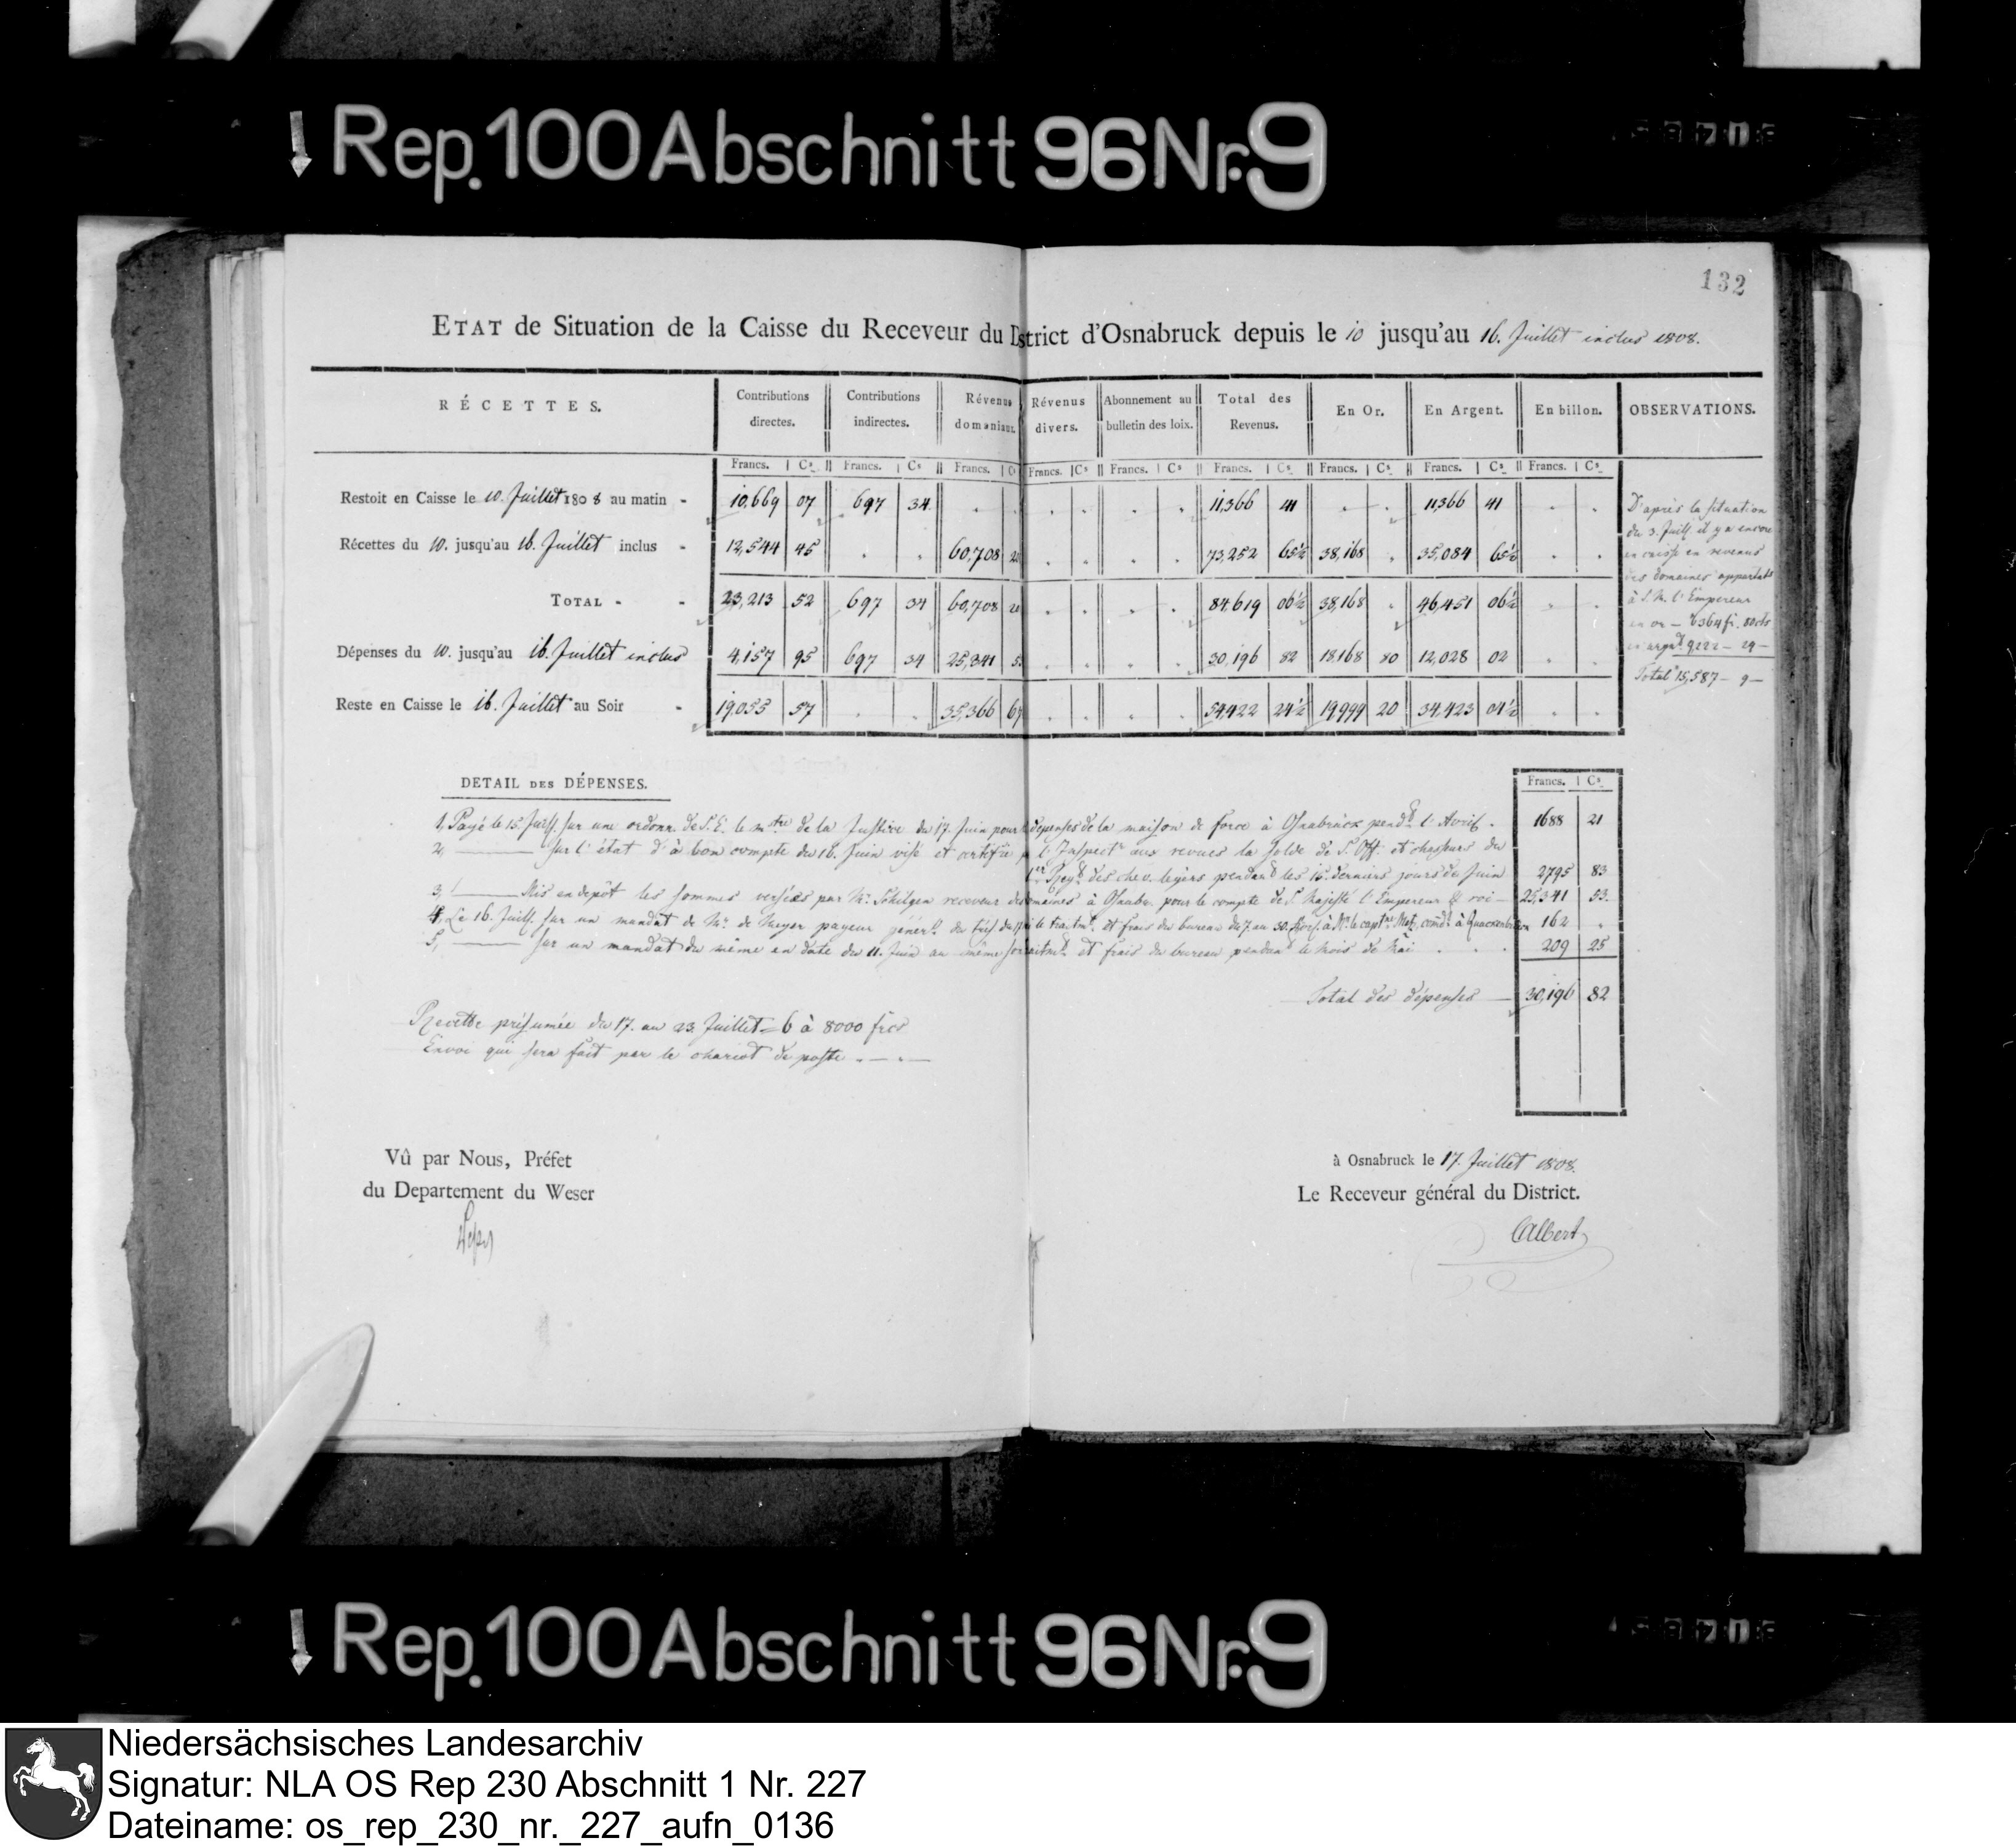 Rep. 100 Abschnitt 96 Nr. 9
132
ETAT de Situation de la Caisse du Receveur du District d'Osnabruck depuis le 10 jusqu'au 16. Juillet inclus 1808.
RÉCETTES. Contributions directes. Contributions indirectes. Révenus domaniaux. Révenus divers. Abonnement au bulletin des loix. Total des Revenus. En Or. En Argent. En billon. OBSERVATIONS.
Francs. Cs Francs. Cs Francs. Cs Francs. Cs Francs. Cs Francs. Cs Francs. Cs Francs. Cs Francs. Cs
Restoit en Caisse le 10. Juillet 1808 au matin - 10,669 07 697 34 . . . . . . 11,366 41 . . 11,366 41 . .
Récettes du 10. jusqu'au 16. Juillet inclus - 12,544 45 . . 60,708 20 . . . . 73,252 65½ 38,168 . 35,084 65½ . .
TOTAL - - 23,213 52 697 34 60,708 20 . . . . 84,619 06½ 38,168 . 46,451 06½ . .
Dépenses du 10. jusqu'au 16. Juillet inclus 4,157 95 697 34 25,341 53 . . . . 30,196 82 18,168 80 12,028 02 . .
Reste en Caisse le 16. Juillet au Soir - 19,055 57 . . 35,366 67 . . . . 54,422 24½ 19,999 20 34,423 04½ . .
D'après la situation
du 3. Juill. il y a encore
en caisse en revenus
des domaines appartents
à S. M. l'Empereur
en or - 6364 fr. 80 cts
en argt 9222 - 29 -
Total 15,587 - 9 -
DETAIL DES DÉPENSES. Francs. Cs
1, Payé le 15. Juill. sur une ordonn. de S. E. le mstre de la Justice du 17. Juin pour dépenses de la maison de force à Osnabrück pendt l'Avril . 1688 21
2, ——— sur l'état d'à bon compte du 16. Juin visé et certifié p l'Inspectr aux revues la solde de S. Off. et chasseurs du
1er Regt des chev. legérs pendant les 15 derniers jours du Juin 2795 83
3, ——— Mis en depôt les sommes versées par Mr. Schilgen receveur des domaines à Osnabr. pour le compte de S. Majesté l'Empereur & roi - 25,341 53
4, Le 16. Juill. sur un mandat de Mr. de Meyer payeur génerl et frais du bureau du 7 au 30. Avril à Mr. le captne Metz, comdt à Quackenbrück 162 .
5, ——— sur un mandat du même en date du 11. Juin au même et frais du bureau pendant le mois de Mai . . . 209 25
Total des dépenses — 30,196 82
Recette présumée du 17. au 23. Juillet = 6 à 8000 frcs
Envoi qui sera fait par le chariot de poste . — . —
Vû par Nous, Préfet
du Departement du Weser
à Osnabruck le 17. Juillet 1808.
Le Receveur général du District.
CAlbert
Rep. 100 Abschnitt 96 Nr. 9
Niedersächsisches Landesarchiv
Signatur: NLA OS Rep 230 Abschnitt 1 Nr. 227
Dateiname: os_rep_230_nr._227_aufn_0136